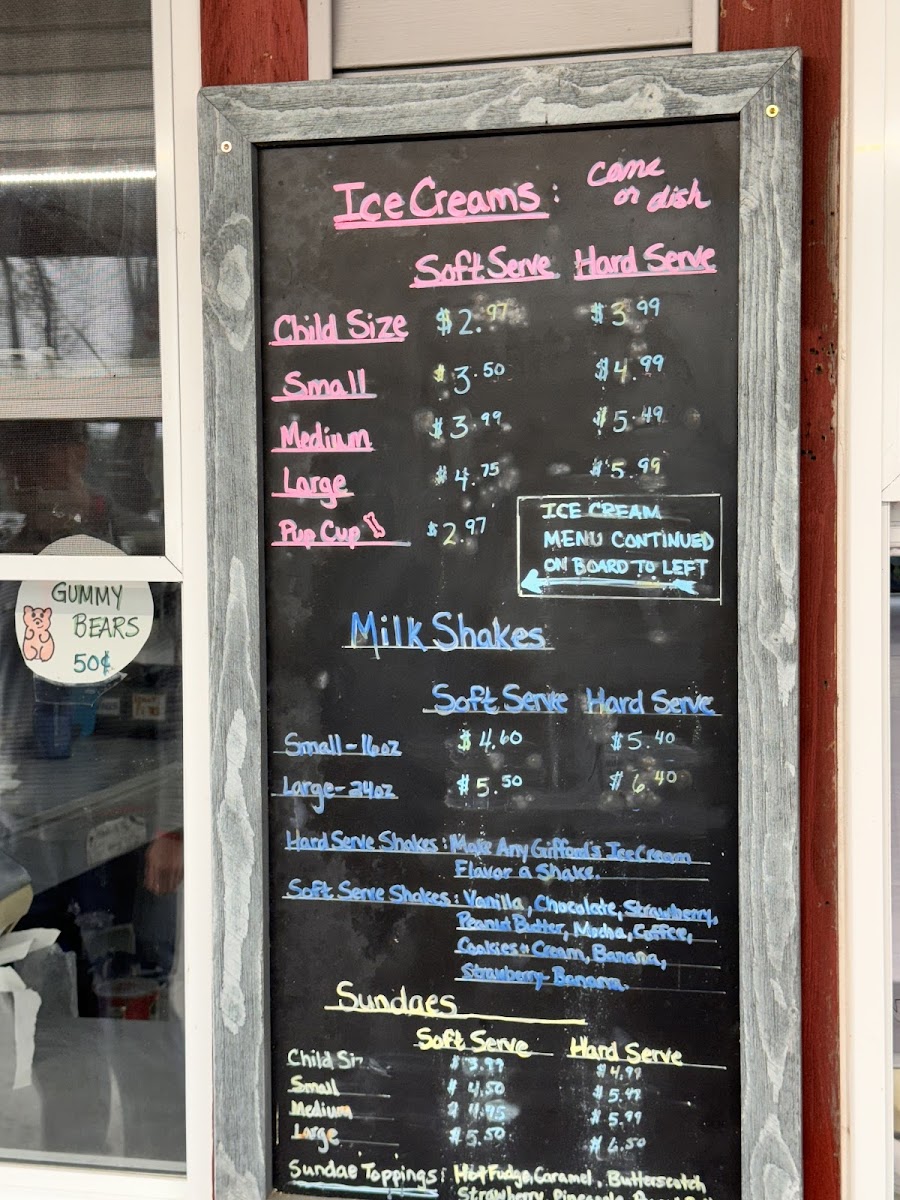 Ice Creams: cone
or dish
Soft Serve Hard Serve
Child Size $2.97 $3.99
Small $3.50 $4.99
Medium $3.99 $5.49
Large $4.75 $5.99
Pup Cup $2.97
ICE CREAM
MENU CONTINUED
ON BOARD TO LEFT
Milk Shakes
Soft Serve Hard Serve
Small-16oz $4.60 $5.40
Large-24oz $5.50 $6.40
Hard Serve Shakes: Make Any Gifford's Ice Cream
Flavor a Shake.
Soft Serve Shakes: Vanilla, Chocolate, Strawberry,
Peanut Butter, Mocha, Coffee,
Cookies + Cream, Banana,
Strawberry Banana.
Sundaes
Soft Serve Hard Serve
Child Si $3.99 $4.99
Small $4.50 $5.49
Medium $4.95 $5.99
Large $5.50 $6.50
Sundae Toppings: Hot Fudge, Caramel, Butterscotch
Strawberry, Pineapple,
GUMMY
BEARS
50¢